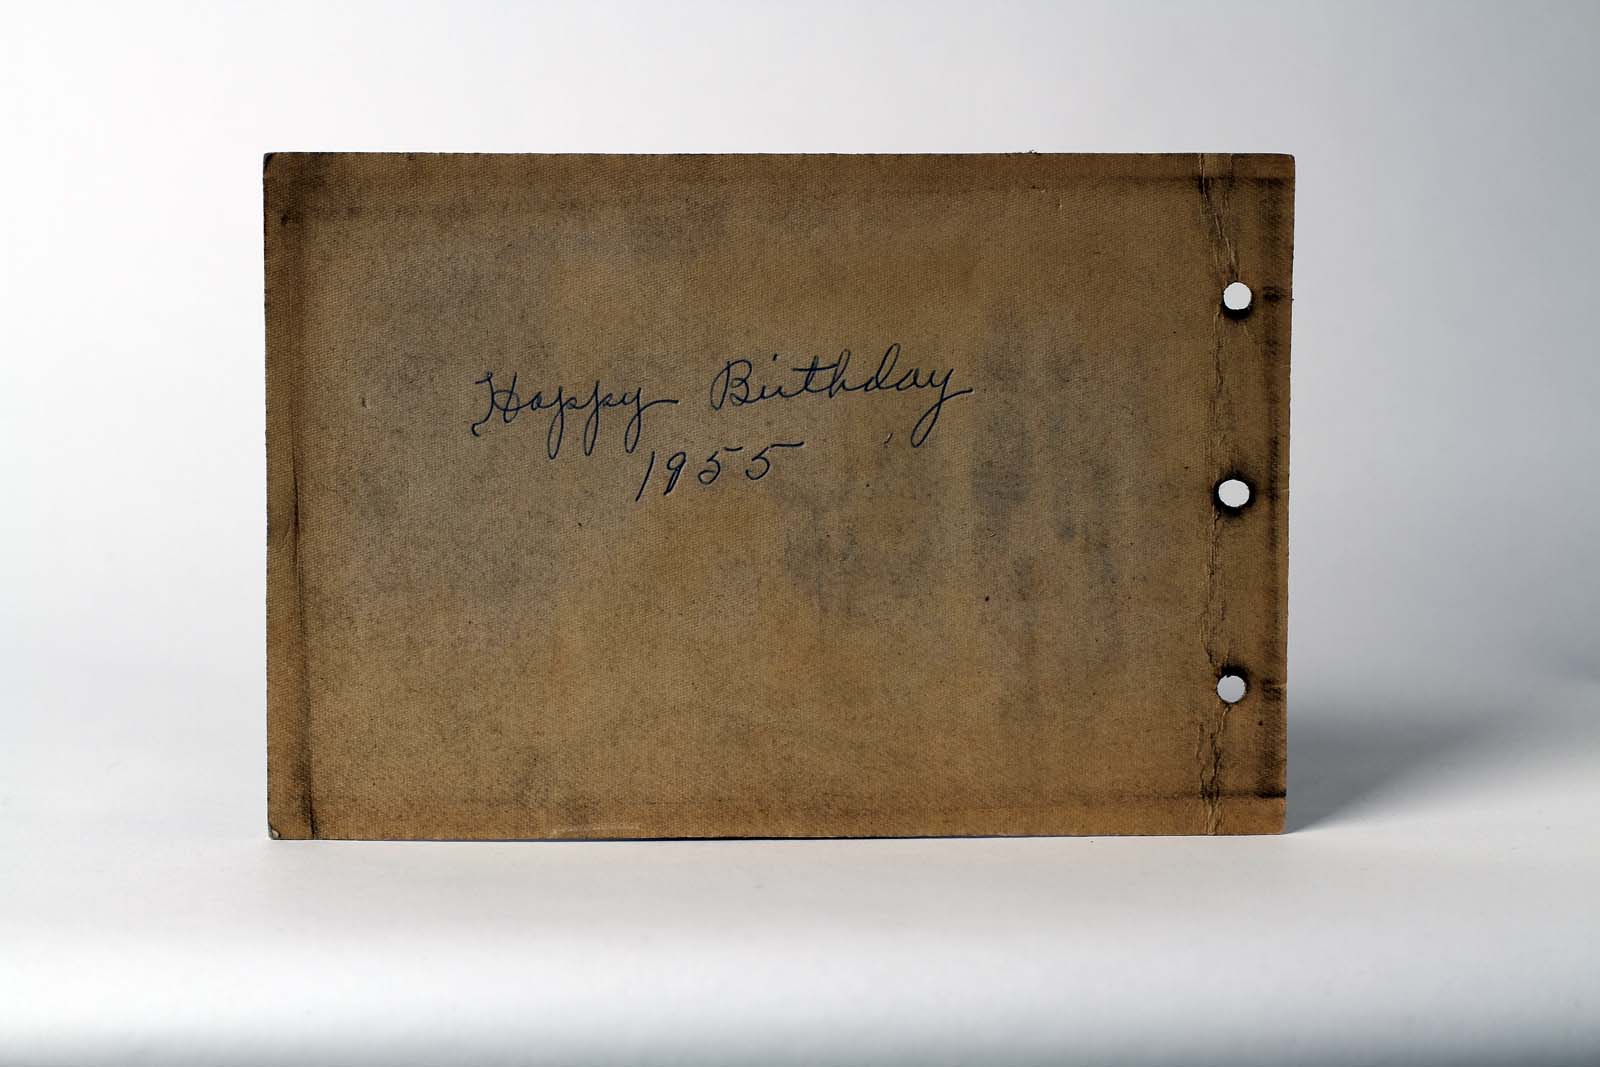 Happy Birthday
1955